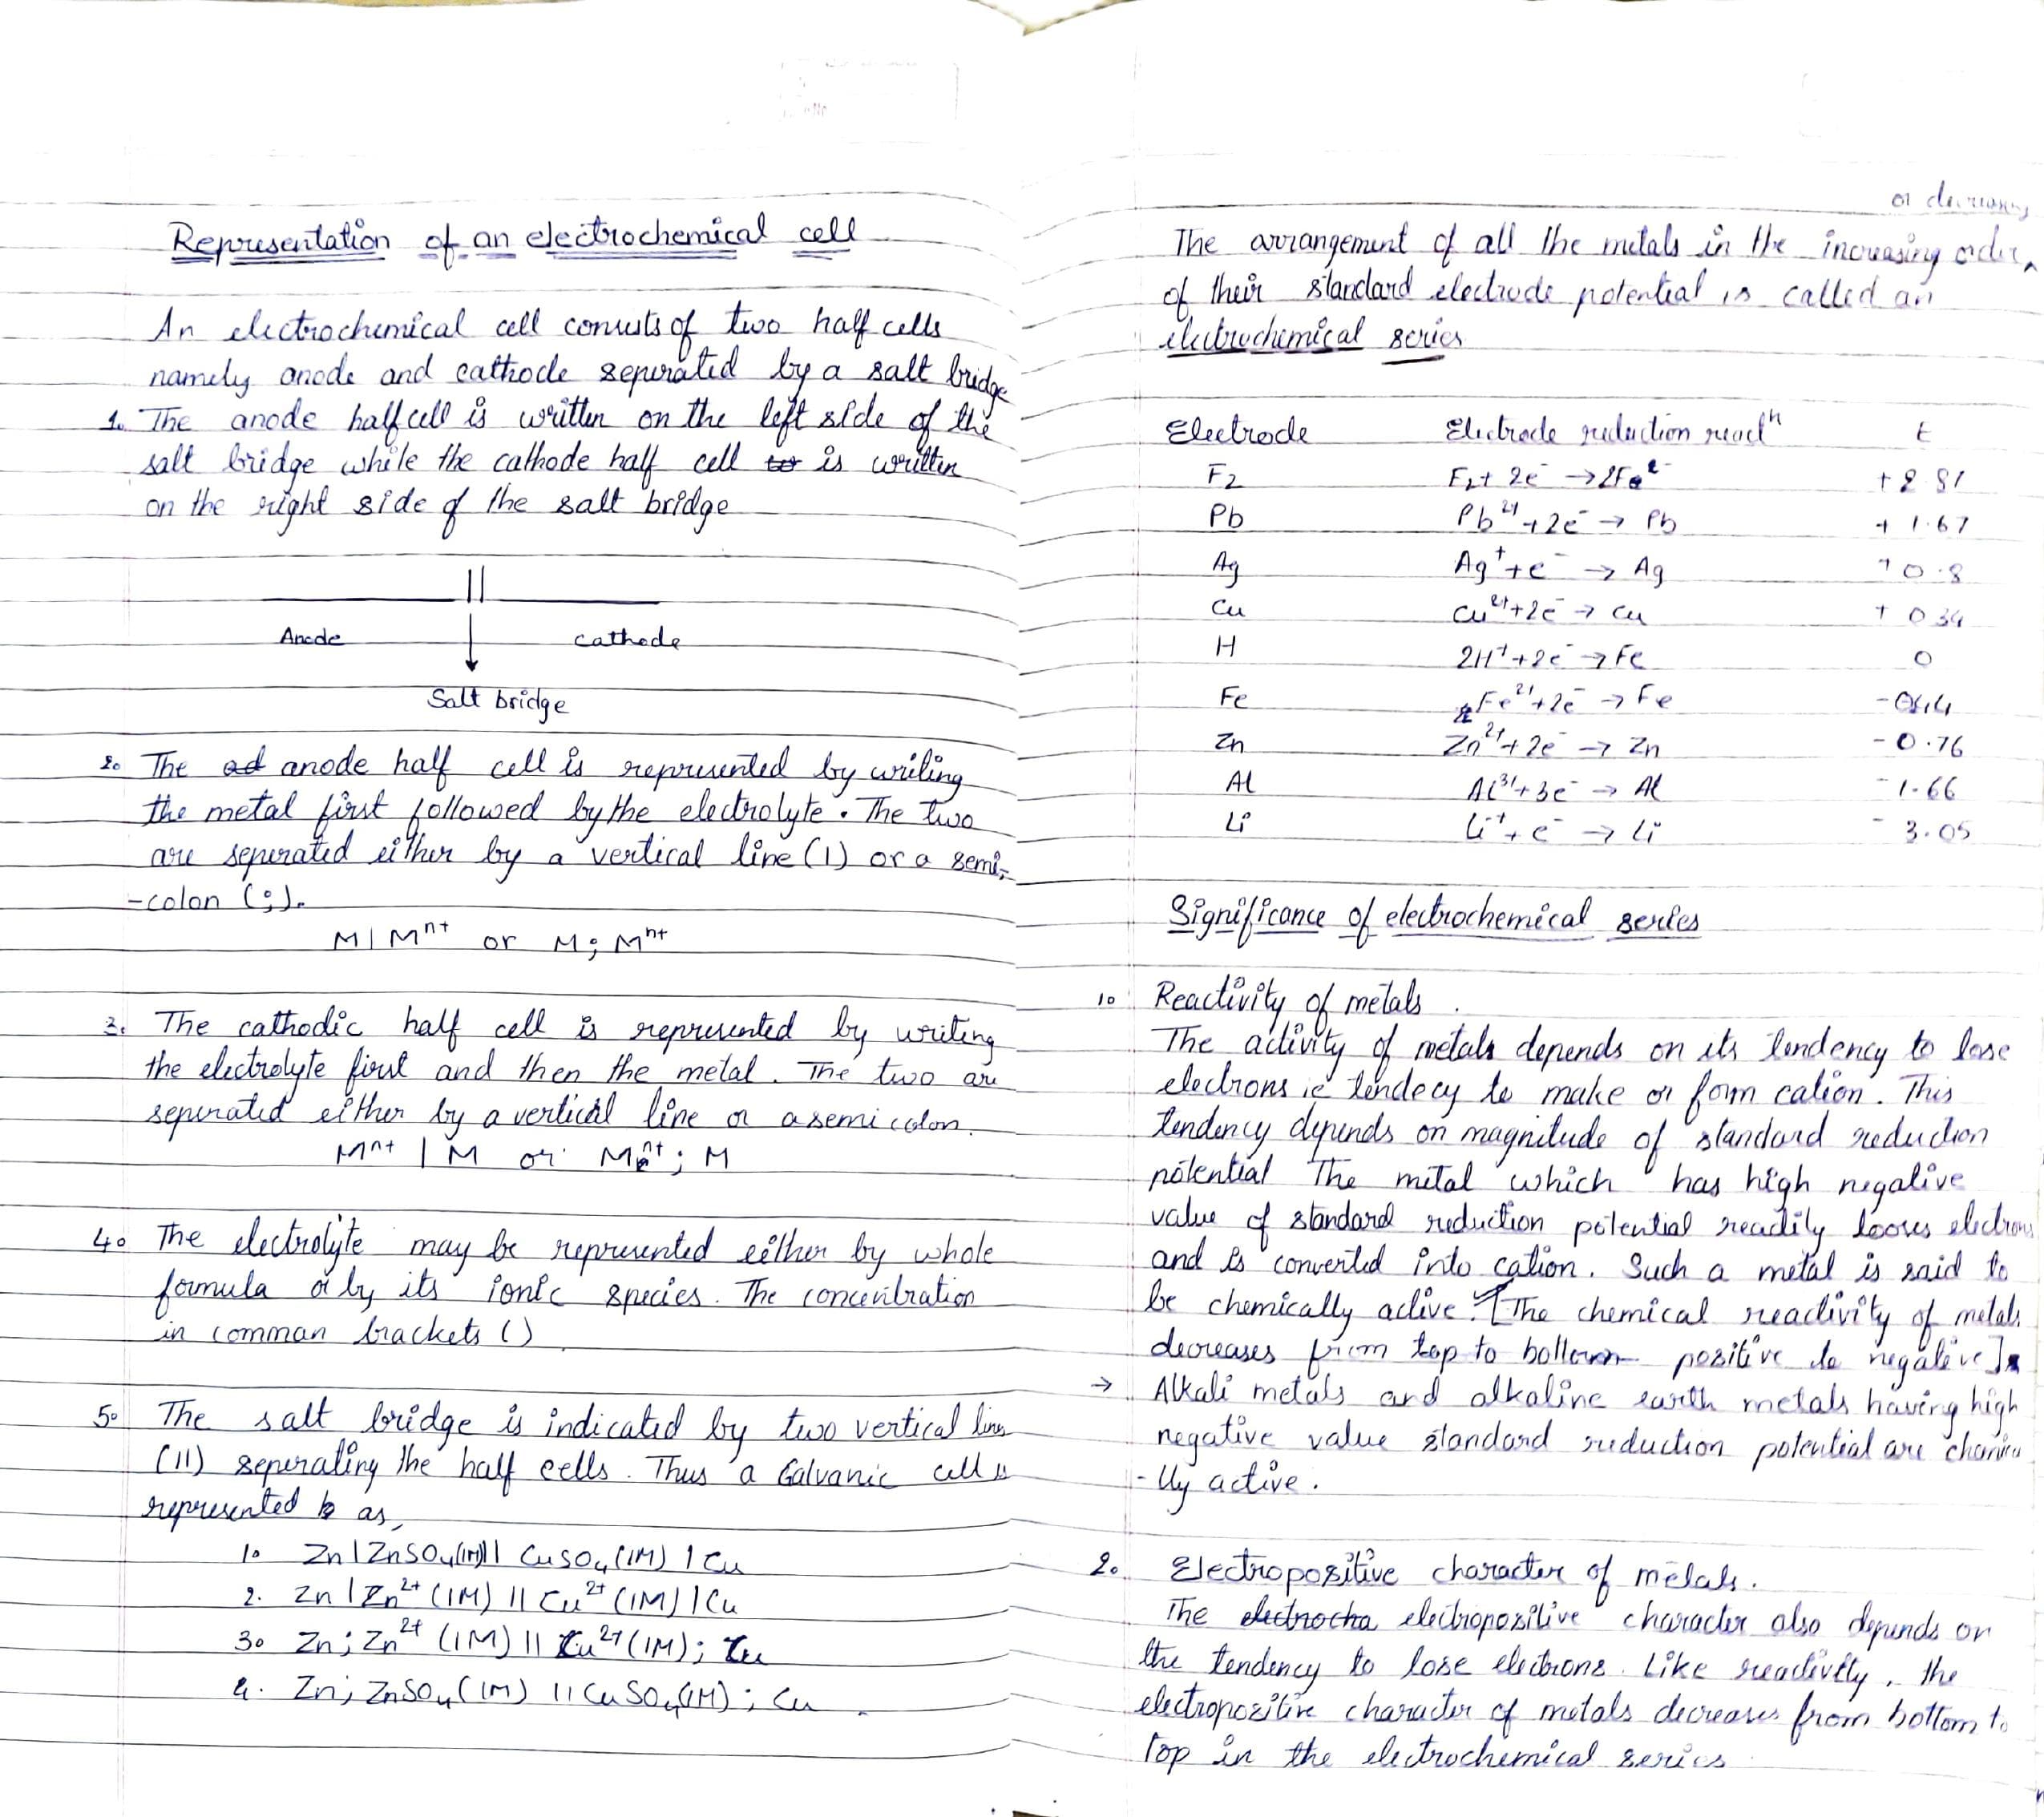 Representation of an electrochemical cell
An electrochemical cell consists of two half cells
namely anode and cathode seperated by a salt bridge
1. The anode half cell is written on the left side of the
salt bridge while the cathode half cell is written
on the right side of the salt bridge
||
Anode cathode
Salt bridge
2. The anode half cell is represented by writing
the metal first followed by the electrolyte. The two
are seperated either by a vertical line (|) or a semi-
-colon (;).
M | Mⁿ⁺ or M ; Mⁿ⁺
3. The cathodic half cell is represented by writing
the electrolyte first and then the metal. The two are
seperated either by a vertical line or a semicolon.
Mⁿ⁺ | M or Mⁿ⁺ ; M
4. The electrolyte may be represented either by whole
formula or by its ionic species. The concentration
in comman brackets ()
5. The salt bridge is indicated by two vertical lines
(||) seperating the half cells. Thus a Galvanic cell is
represented as,
1. Zn | ZnSO₄(1M) || CuSO₄(1M) | Cu
2. Zn | Zn²⁺ (1M) || Cu²⁺ (1M) | Cu
3. Zn ; Zn²⁺ (1M) || Cu²⁺ (1M) ; Cu
4. Zn ; ZnSO₄ (1M) || CuSO₄(1M) ; Cu
or decreasing
The arrangement of all the metals in the increasing order
of their standard electrode potential is called an
electrochemical series
Electrode Electrode reduction reactⁿ E
F₂ F₂ + 2e⁻ → 2F⁻ +2.81
Pb Pb²⁺ + 2e⁻ → Pb + 1.67
Ag Ag⁺ + e⁻ → Ag +0.8
Cu Cu²⁺ + 2e⁻ → Cu + 0.34
H 2H⁺ + 2e⁻ → Fe 0
Fe Fe²⁺ + 2e⁻ → Fe -0.44
Zn Zn²⁺ + 2e⁻ → Zn -0.76
Al Al³⁺ + 3e⁻ → Al -1.66
Li Li⁺ + e⁻ → Li - 3.05
Significance of electrochemical series
1. Reactivity of metals
The activity of metals depends on its tendency to lose
electrons ie tendecy to make or form cation. This
tendency depends on magnitude of standard reduction
potential The metal which has high negative
value of standard reduction potential readily looses electrons
and is converted into cation. Such a metal is said to
be chemically active. [The chemical reactivity of metals
decreases from top to bottom positive to negative].
→ Alkali metals and alkaline earth metals having high
negative value standard reduction potential are chemica
-lly active.
2. Electropositive character of metals.
The electropositive character also depends on
the tendency to lose electrons. Like reactivity, the
electropositive character of metals decreases from bottom to
top in the electrochemical series